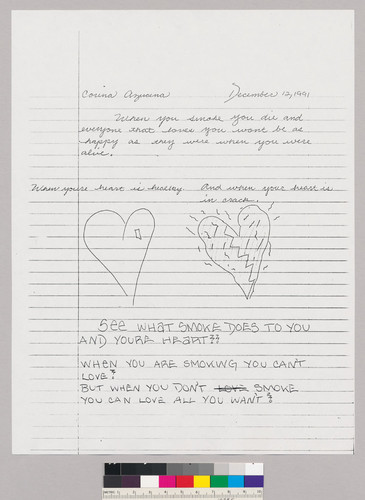 Corina December 12, 1991
When you smoke you die and
everyone that loves you wont be as
happy as they were when you were
alive.
When you're heart is healthy. And when your heart is
in crack.
See WHAT SMOKE DOES TO YOU
AND YOURE HEART??
WHEN YOU ARE SMOKING YOU CAN'T
LOVE?
BUT WHEN YOU DON'T LOVE SMOKE
YOU CAN LOVE ALL YOU WANT?